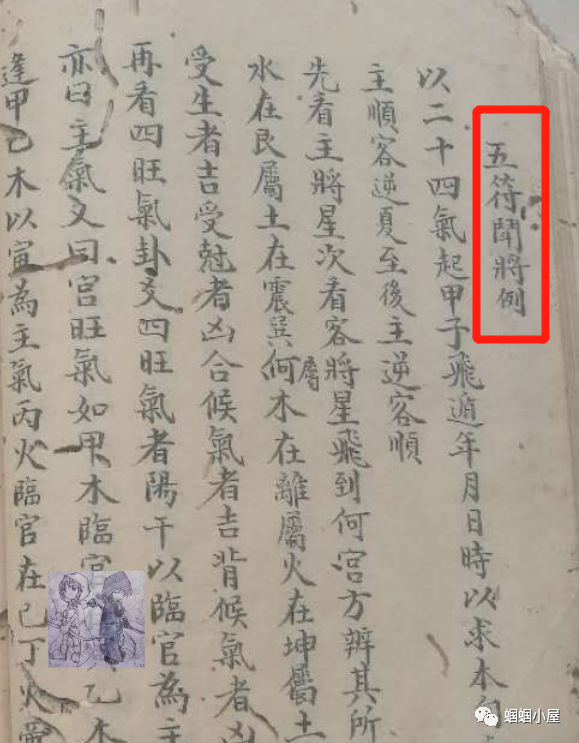 五符鬪將例
以二十四氣起甲子飛遁年月日時以求本
主順客逆夏至後主逆客順
先看主將星次看客將星飛到何宮方辨其所
水在艮屬土在震巽何屬木在離屬火在坤屬土
受生者吉受尅者凶合候氣者吉背候氣者凶
再看四旺氣卦爻四旺氣者陽干以臨官為主
亦曰主氣又曰宮旺氣如甲木臨官 乙木
逢甲乙木以寅為主氣丙火臨官在巳丁火
蝈蝈小屋